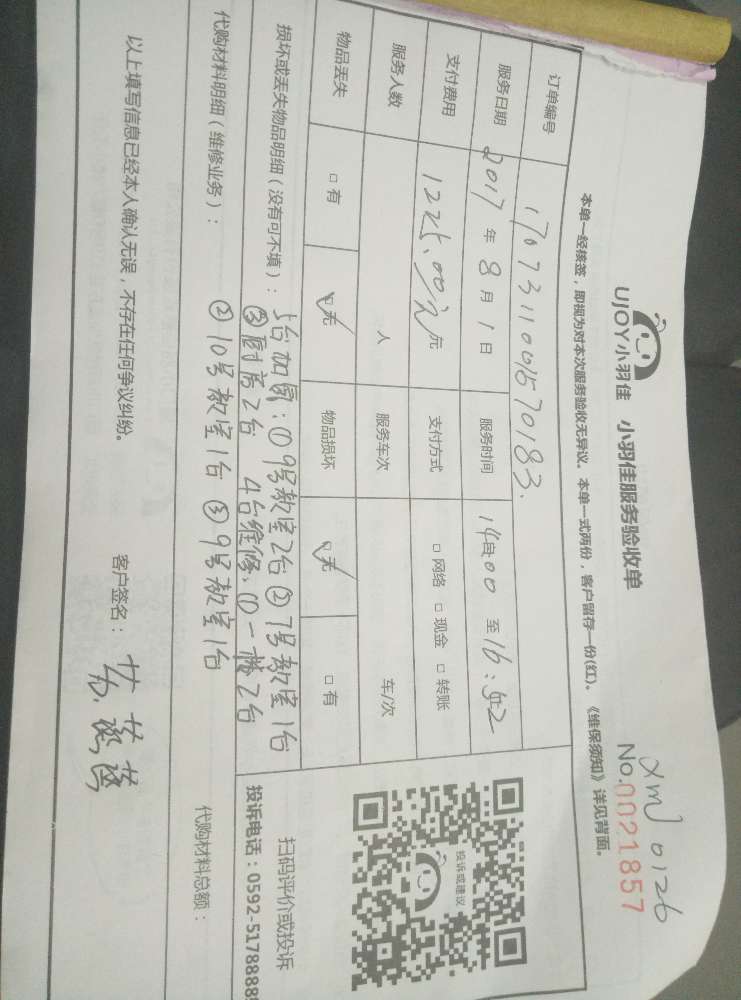 UJOY小羽佳 小羽佳服务验收单
XM 0126
No.0021857
本单一经核签，即视为对本次服务验收无异议。本单一式两份，客户留存一份(红)。《维保须知》详见背面。
订单编号 1707311001570183.
服务日期 2017年8月1日 服务时间 14时00至16:52
支付费用 1225.00元 元 支付方式 □网络 □现金 □转账
服务人数 人 服务车次 车/次
物品丢失 □有 ☑无 物品损坏 ☑无 □有
投诉或建议
扫码评价或投诉
投诉电话：0592-5178888
损坏或丢失物品明细（没有可不填）： 加氟：①9号教室2台②7号教室1台
③厨房2台 4台维修：①一楼2台
代购材料明细（维修业务）： ②10号教室1台 ③9号教室1台
代购材料总额：
以上填写信息已经本人确认无误，不存在任何争议纠纷。 客户签名：